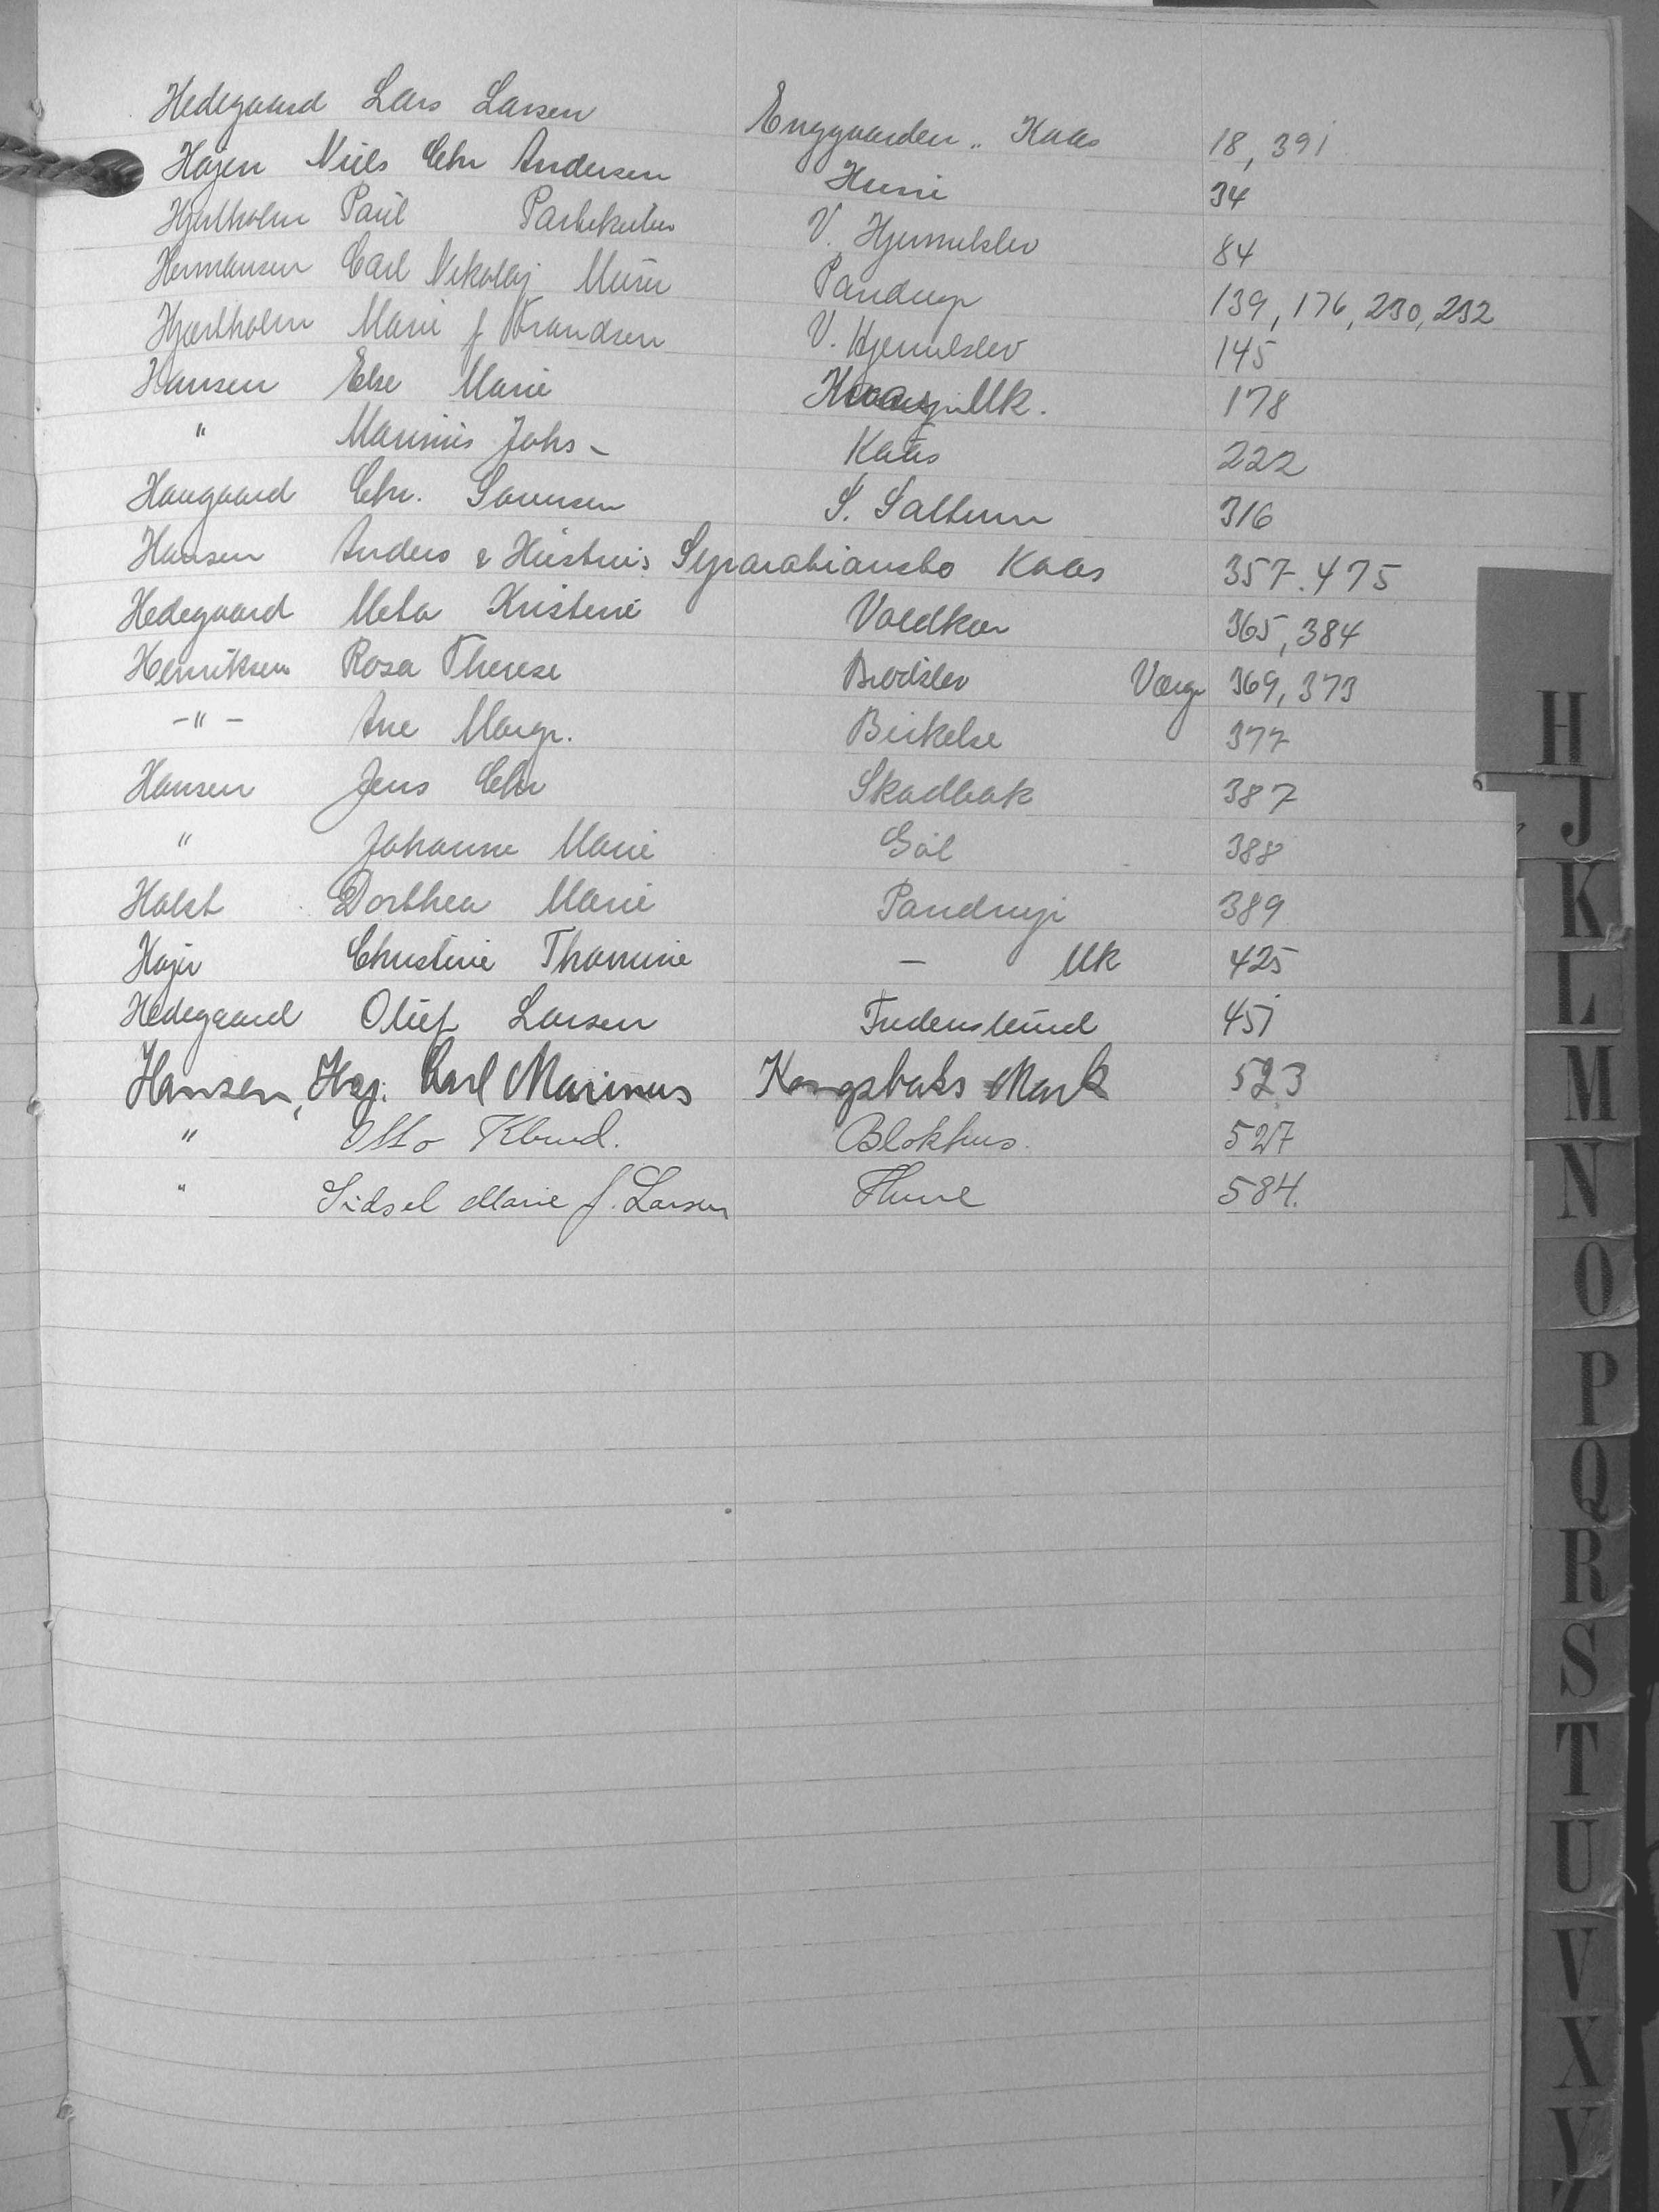 Hedegaard Lars Larsen Enggaarden „ Kaas 18, 391
Højen Niels Chr Andersen Hune 34
Hjortholm Paul Partikulier V. Hjermitslev 84
Hermansen Carl Nikolaj Murer Pandrup 139, 176, 230, 232
Hjortholm Marie f Brandsen V. Hjermitslev 145
Hansen Else Marie Kaas Mk. 178
" Marinus Johs - Kaas 222
Haugaard Chr. Sørensen S. Saltum 316
Hansen Anders & Hustrus Separationsbo Kaas 357. 475
Hedegaard Meta Kristine Voldkær 365, 384
Henriksen Rosa Therese Brødslev Værge 369, 373
-"- Ane Margr. Birkelse 377
Hansen Jens Chr Skadbak 387
" Johanne Marie Gøl 388
Holst Dorthea Marie Pandrup 389
Højer Christine Thomine - Mk 425
Hedegaard Oluf Larsen Fredenslund 451
Hansen, Hsg. Carl Marinus Kongsbaks Mark 523
" Otto Blokhus. 527
" Sidsel Marie f. Larsen Hune 584.
H
J
K
L
M
N
O
P
Q
R
S
T
U
V
X
Y